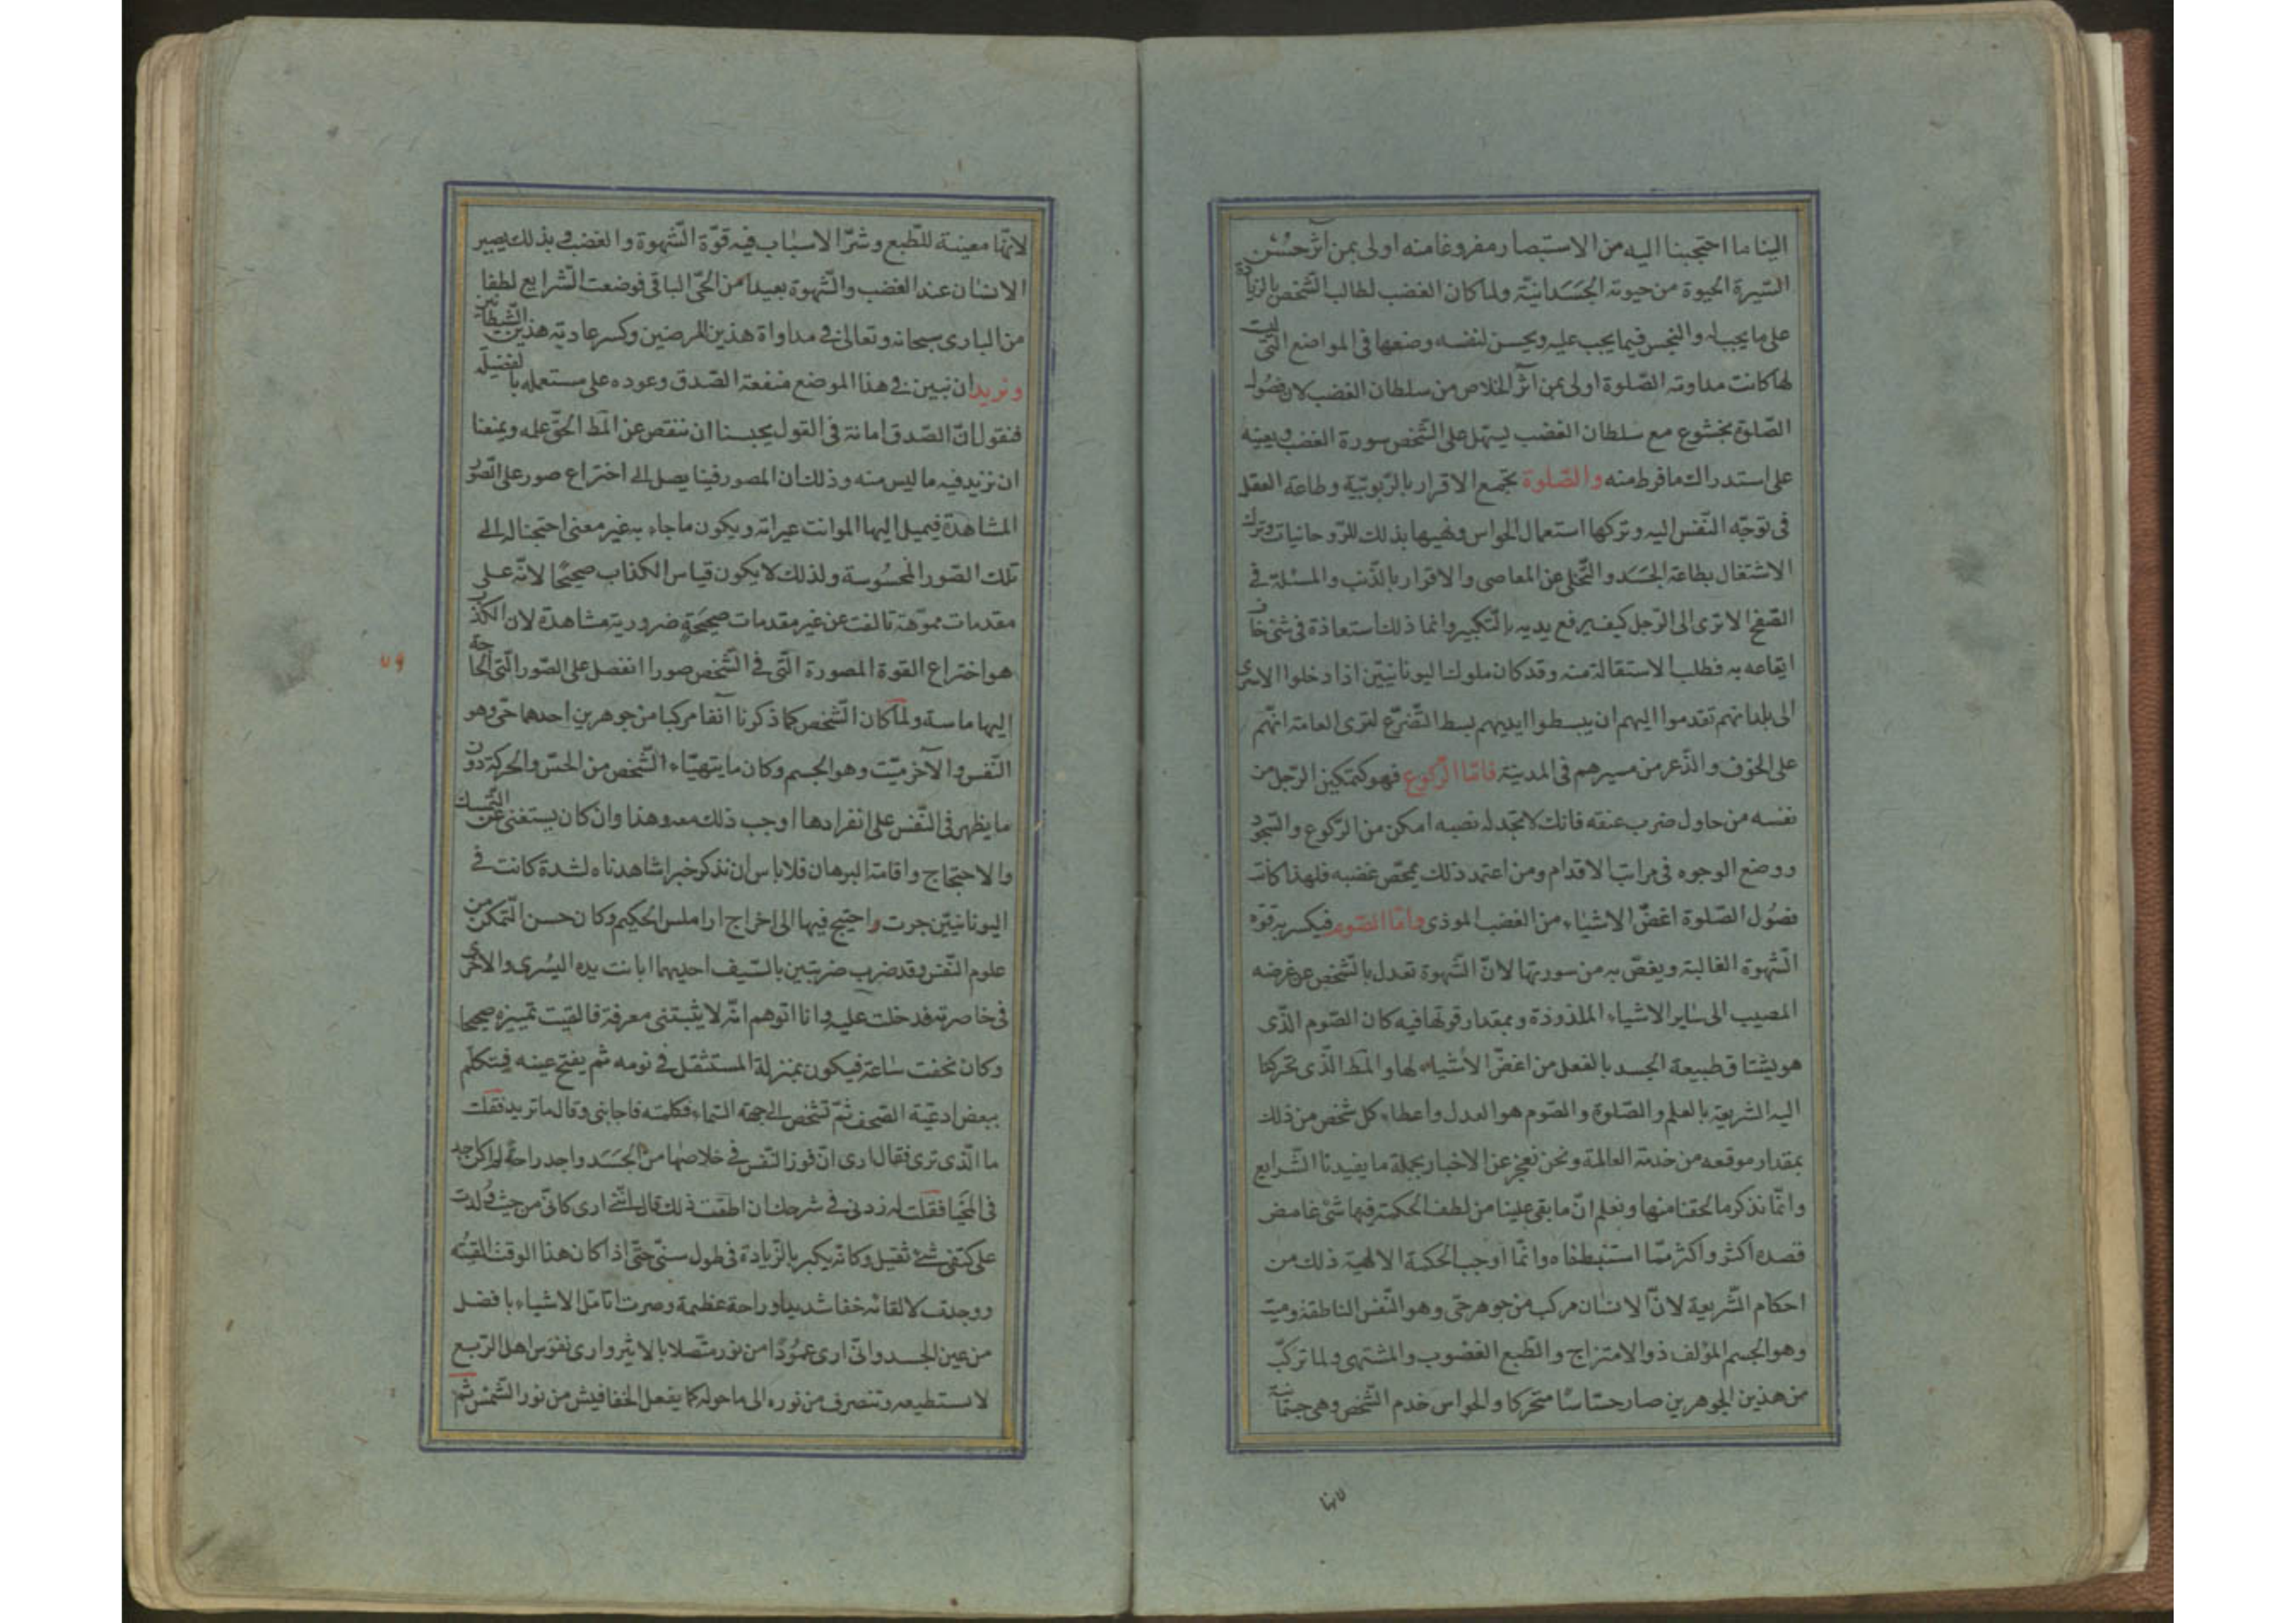 الينا ما احتجبنا اليه من الاستبصار مفروغا منه اولى بمن آثر حسن
السيرة الحيوة من حيوته الجسدانيّة ولما كان الغضب لطالب الشخص بالزيادة
على ما يجب له والنجس فيما يجب عليه ويحسن لنفسه وضعها فى المواضع التى ليست
لها كانت مداوته الصّلوة اولى بمن آثر الخلاص من سلطان الغضب لان فصول
الصّلوة بخشوع مع سلطان الغضب ليسهل على الشّخص سورة الغضب ويعينه
على استدراك ما فرط منه والصّلوة تجمع الاقرار بالرّبوبيّة وطاعة العقل
فى توجّه النّفس اليه وتركها استعمال الحواس ونهيها بذلك للرّوحانيات وترك
الاشتغال بطاعة الجسد والتّخلى عن المعاصى والاقرار بالذّنب والمسئلة فى
الصّفح الا ترى الى الرّجل كيف يرفع يديه بالتّكبير وانما ذلك استعاذة فى شئ خاف
ايقاعه به فطلب الاستقالة منه وقد كان ملوك اليونانيّين اذا دخلوا الاسرى
الى بلدانهم تقدموا اليهم ان يبسطوا ايديهم بسط التّضرّع لترى العامة انّهم
على الخوف والذّعر من مسيرهم فى المدينة فامّا الرّكوع فهو كتمكين الرّجل من
نفسه من حاول ضرب عنقه فانك لا تجد له نصبه امكن من الرّكوع والسّجود
ووضع الوجوه فى مراتب الاقدام ومن اعتمد ذلك يمحّص غضبه فلهذا كانت
فصول الصّلوة اغضّ الاشياء من الغضب الموذى وامّا الصّوم فيكسر به قوّة
الشّهوة الغالبة ويغضّ به من سورتها لانّ الشّهوة تعدل بالشّخص عن غرضه
المصيب الى ساير الاشياء الملذوذة وبمقدار قوتها فيه كان الصّوم الذّى
هو يشتاق طبيعة الجسد بالفعل من اغضّ الأشياء لها والمط الذّى تحركنا
اليه الشريعة بالعلم والصّلوة والصّوم هو العدل واعطاء كل شخص من ذلك
بمقدار موقعه من خدمة العالمة ونحن نعجز عن الاخبار بجملة ما يفيدنا الشّرايع
وانّما نذكر ما لحقنا منها ونعلم انّ ما بقى علينا من لطف الحكمة فيها شئ غامض
قصده اكثر واكثر ممّا استنبطناه وانّما اوجب الحكمة الالهيّة ذلك من
احكام الشّريعة لانّ الانسان مركب من جوهر حىّ وهو النّفس الناطقة وميت
وهو الجسم المؤلف ذو الامتزاج والطّبع الغضوب والمشتهى ولما تركّب
من هذين الجوهرين صار حسّاسًا متحركا والحواس خدم الشّخص وهى جسمانية
لانها
لانّها معينة للطّبع وشرّ الاسباب فيه قوّة الشّهوة والغضب وبذلك يصير
الانسان عند الغضب والشّهوة بعيدا من الحىّ الباقى فوضعت الشّرايع لطفا
من البارى سبحانه وتعالى فى مداواة هذين المرضين وكسر عادية هذين الشّيطانين
ونريد ان نبين فى هذا الموضع منفعة الصّدق وعوده على مستعمله بالفضيلة
فنقول انّ الصّدق امانة فى القول يحبسنا ان ننقص عن المط الحقّ عمله ويمنعنا
ان نزيد فيه ما ليس منه وذلك ان المصور فينا يصل الى اختراع صور على الصّور
المشاهدة فيميل اليها الموانت عيراته ويكون ما جاء به غير معنى احتجنا له الى
تلك الصّور المحسوسة ولذلك لا يكون قياس الكذاب صحيحًا لانّه على
مقدمات مموّهة تالفت عن غير مقدمات صحيحة ضرورية مشاهدة لان الكذب
هو اختراع القوة المصورة الّتى فى الشّخص صورا انفصل على الصّور الّتى الحاجة
٧٩
اليها ماسة ولمّا كان الشّخص كما ذكرنا آنفا مركبا من جوهرين احدهما حىّ وهو
النّفس والآخر ميّت وهو الجسم وكان ما يتهيّاء الشّخص من الحسّ والحركة دون
ما يظهر فى النّفس على انفرادها اوجب ذلك معه وهذا وان كان يستغنى عن التّمسك
والاحتجاج واقامة البرهان فلا باس ان نذكر خبرا شاهدناه لشدة كانت فى
اليونانيّين جرت واحتيج فيها الى اخراج اراملس الحكيم وكان حسن التّمكن من
علوم النّفس وقد ضرب ضربتين بالسّيف احديهما ابانت يده اليسرى والاخرى
فى خاصرته فدخلت عليه وانا اتوهم انّه لا يثبتنى معرفة فالفيت تمييزه صحيحا
وكان نخفت ساعة فيكون بمنزلة المستثقل فى نومه ثم يفتح عينه فيتكلّم
ببعض ادعيّة الصّحف ثمّ تشخّص الى جهة السّماء فكلمته فاجابنى وقال ما تريد فقلت
ما الّذى ترى فقال ارى انّ فوز النّفس فى خلاصها من الجسد واجد راحة لم اكن اجد
فى المحيا فقلت له زدنى فى شرحك ان اطقت ذلك قال انّنى ارى كانّ من حيث ولدت
على كتفى شئ ثقيل وكانّه يكبر بالزّيادة فى طول سنىّ حتّى اذا كان هذا الوقت القيته
ووجدت لالقائه خفا شديدا وراحة عظيمة وصرت اتامّل الاشياء بافضل
من عين الجسد وانّى ارى عمودًا من نور متّصلا بالاثير وارى نفوس اهل الرّبع
لا تستطيعه وتنصرف من نوره الى ما حوله كما يفعل الخفافيش من نور الشّمس ثم